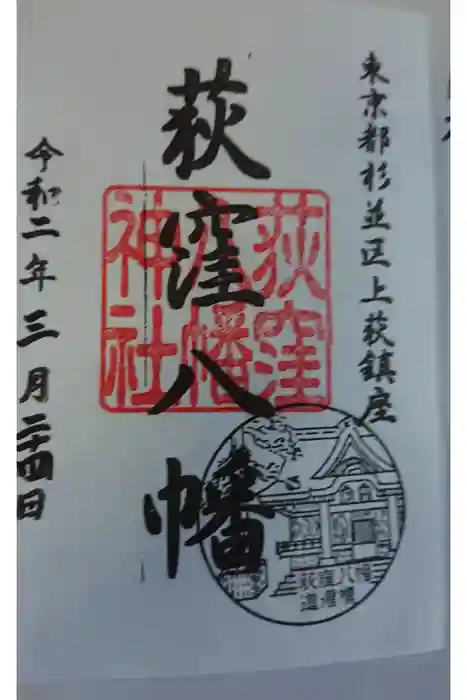 東京都杉並区上荻鎮座
荻窪八幡
荻窪
八幡
神社
荻窪八幡
令和二年三月二十四日